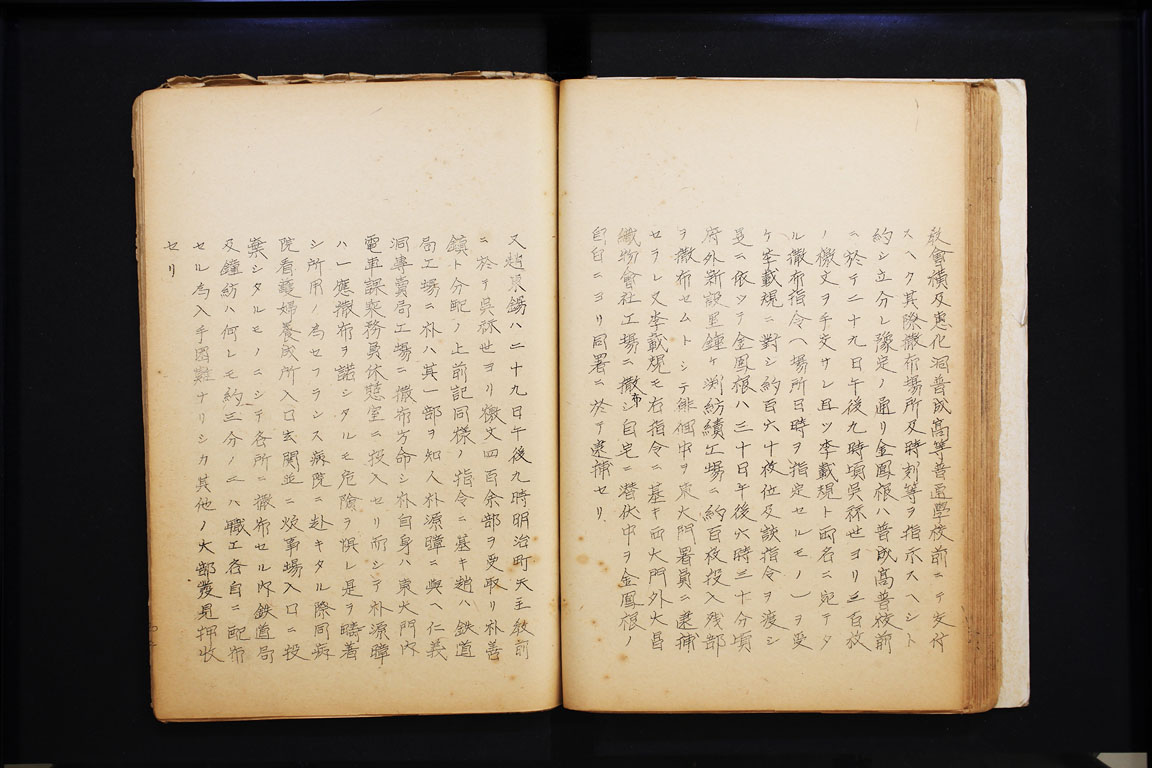 敎會橫及惠化洞普成高等普通學校前ニテ交付
スヘク其際撒布場所及時刻等ヲ指示スヘシト
約シ立分レ豫定ノ通リ金鳳根ハ普成高普校前
ニ於テ二十九日午後九時頃吳秝世ヨリ三百枚
ノ檄文ヲ手交サレ且ツ李載規ト両名ニ宛テタ
ル撒布指令(場所日時ヲ指定セルモノ)ヲ受
ケ李載規ニ對シ約百六十枚位及該指令ヲ渡シ
是ニ依ツテ金鳳根ハ三十日午後六時三十分頃
府外新設里鐘ケ渕紡績工場ニ約百枚投入残部
ヲ撒布セムトシテ徘徊中ヲ東大門署員ニ逮捕
セラレ又李載規モ右指令ニ基キ西大門外大昌
織物會社工場ニ撒布シ自宅ニ潜伏中ヲ金鳳根ノ
自白ニヨリ同署ニ於テ逮捕セリ
又趙東錫ハ二十九日午後九時明治町天主敎前
ニ於テ吳秝世ヨリ檄文四百余部ヲ受取リ朴善
鎮ト分配ノ上前記同様ノ指令ニ基キ趙ハ鉄道
局工場ニ朴ハ其一部ヲ知人朴源暲ニ與ヘ仁義
洞專賣局工場ニ撒布方命シ朴自身ハ東大門内
電車課乘務員休憩室ニ投入セリ而シテ朴源暲
ハ一應撒布ヲ諾シタルモ危險ヲ惧レ是ヲ躊著
シ所用ノ為セブランス病院ニ赴キタル際同病
院看護婦養成所入口玄関並ニ炊事場入口ニ投
棄シタルモノニシテ各所ニ撒布セル内鉄道局
及鐘紡ハ何レモ約三分ノ二ハ職工各自ニ配布
セル為入手困難ナリシカ其他ノ大部發見押收
セリ